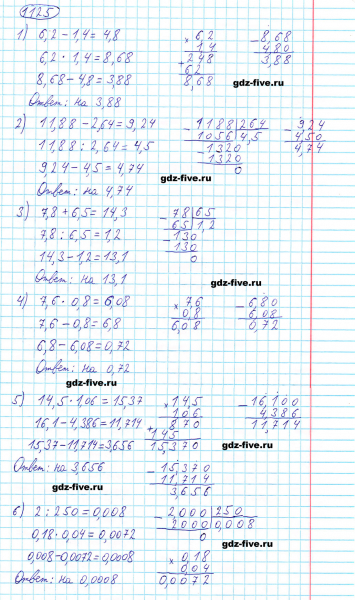 1125
1) 6,2 - 1,4 = 4,8
6,2 · 1,4 = 8,68
8,68 - 4,8 = 3,88
Ответ: на 3,88
× 6,2
1,4
+ 248
62
8,68
- 8,68
4,80
3,88
gdz-five.ru
2) 11,88 - 2,64 = 9,24
11,88 : 2,64 = 4,5
9,24 - 4,5 = 4,74
Ответ: на 4,74
- 1188 | 264
1056 | 4,5
- 1320
1320
0
- 9,24
4,50
4,74
gdz-five.ru
3) 7,8 + 6,5 = 14,3
7,8 : 6,5 = 1,2
14,3 - 1,2 = 13,1
Ответ: на 13,1
- 78 | 65
65 | 1,2
- 130
130
0
gdz-five.ru
4) 7,6 · 0,8 = 6,08
7,6 - 0,8 = 6,8
6,8 - 6,08 = 0,72
Ответ: на 0,72
× 7,6
0,8
6,08
- 6,80
6,08
0,72
gdz-five.ru
5) 14,5 · 1,06 = 15,37
16,1 - 4,386 = 11,714
15,37 - 11,714 = 3,656
Ответ: на 3,656
× 14,5
1,06
+ 870
145
15,370
- 16,100
4,386
11,714
gdz-five.ru
- 15,370
11,714
3,656
gdz-five.ru
6) 2 : 250 = 0,008
0,18 · 0,04 = 0,0072
0,008 - 0,0072 = 0,0008
Ответ: на 0,0008
- 2,000 | 250
2000 | 0,008
0
× 0,18
0,04
0,0072
gdz-five.ru